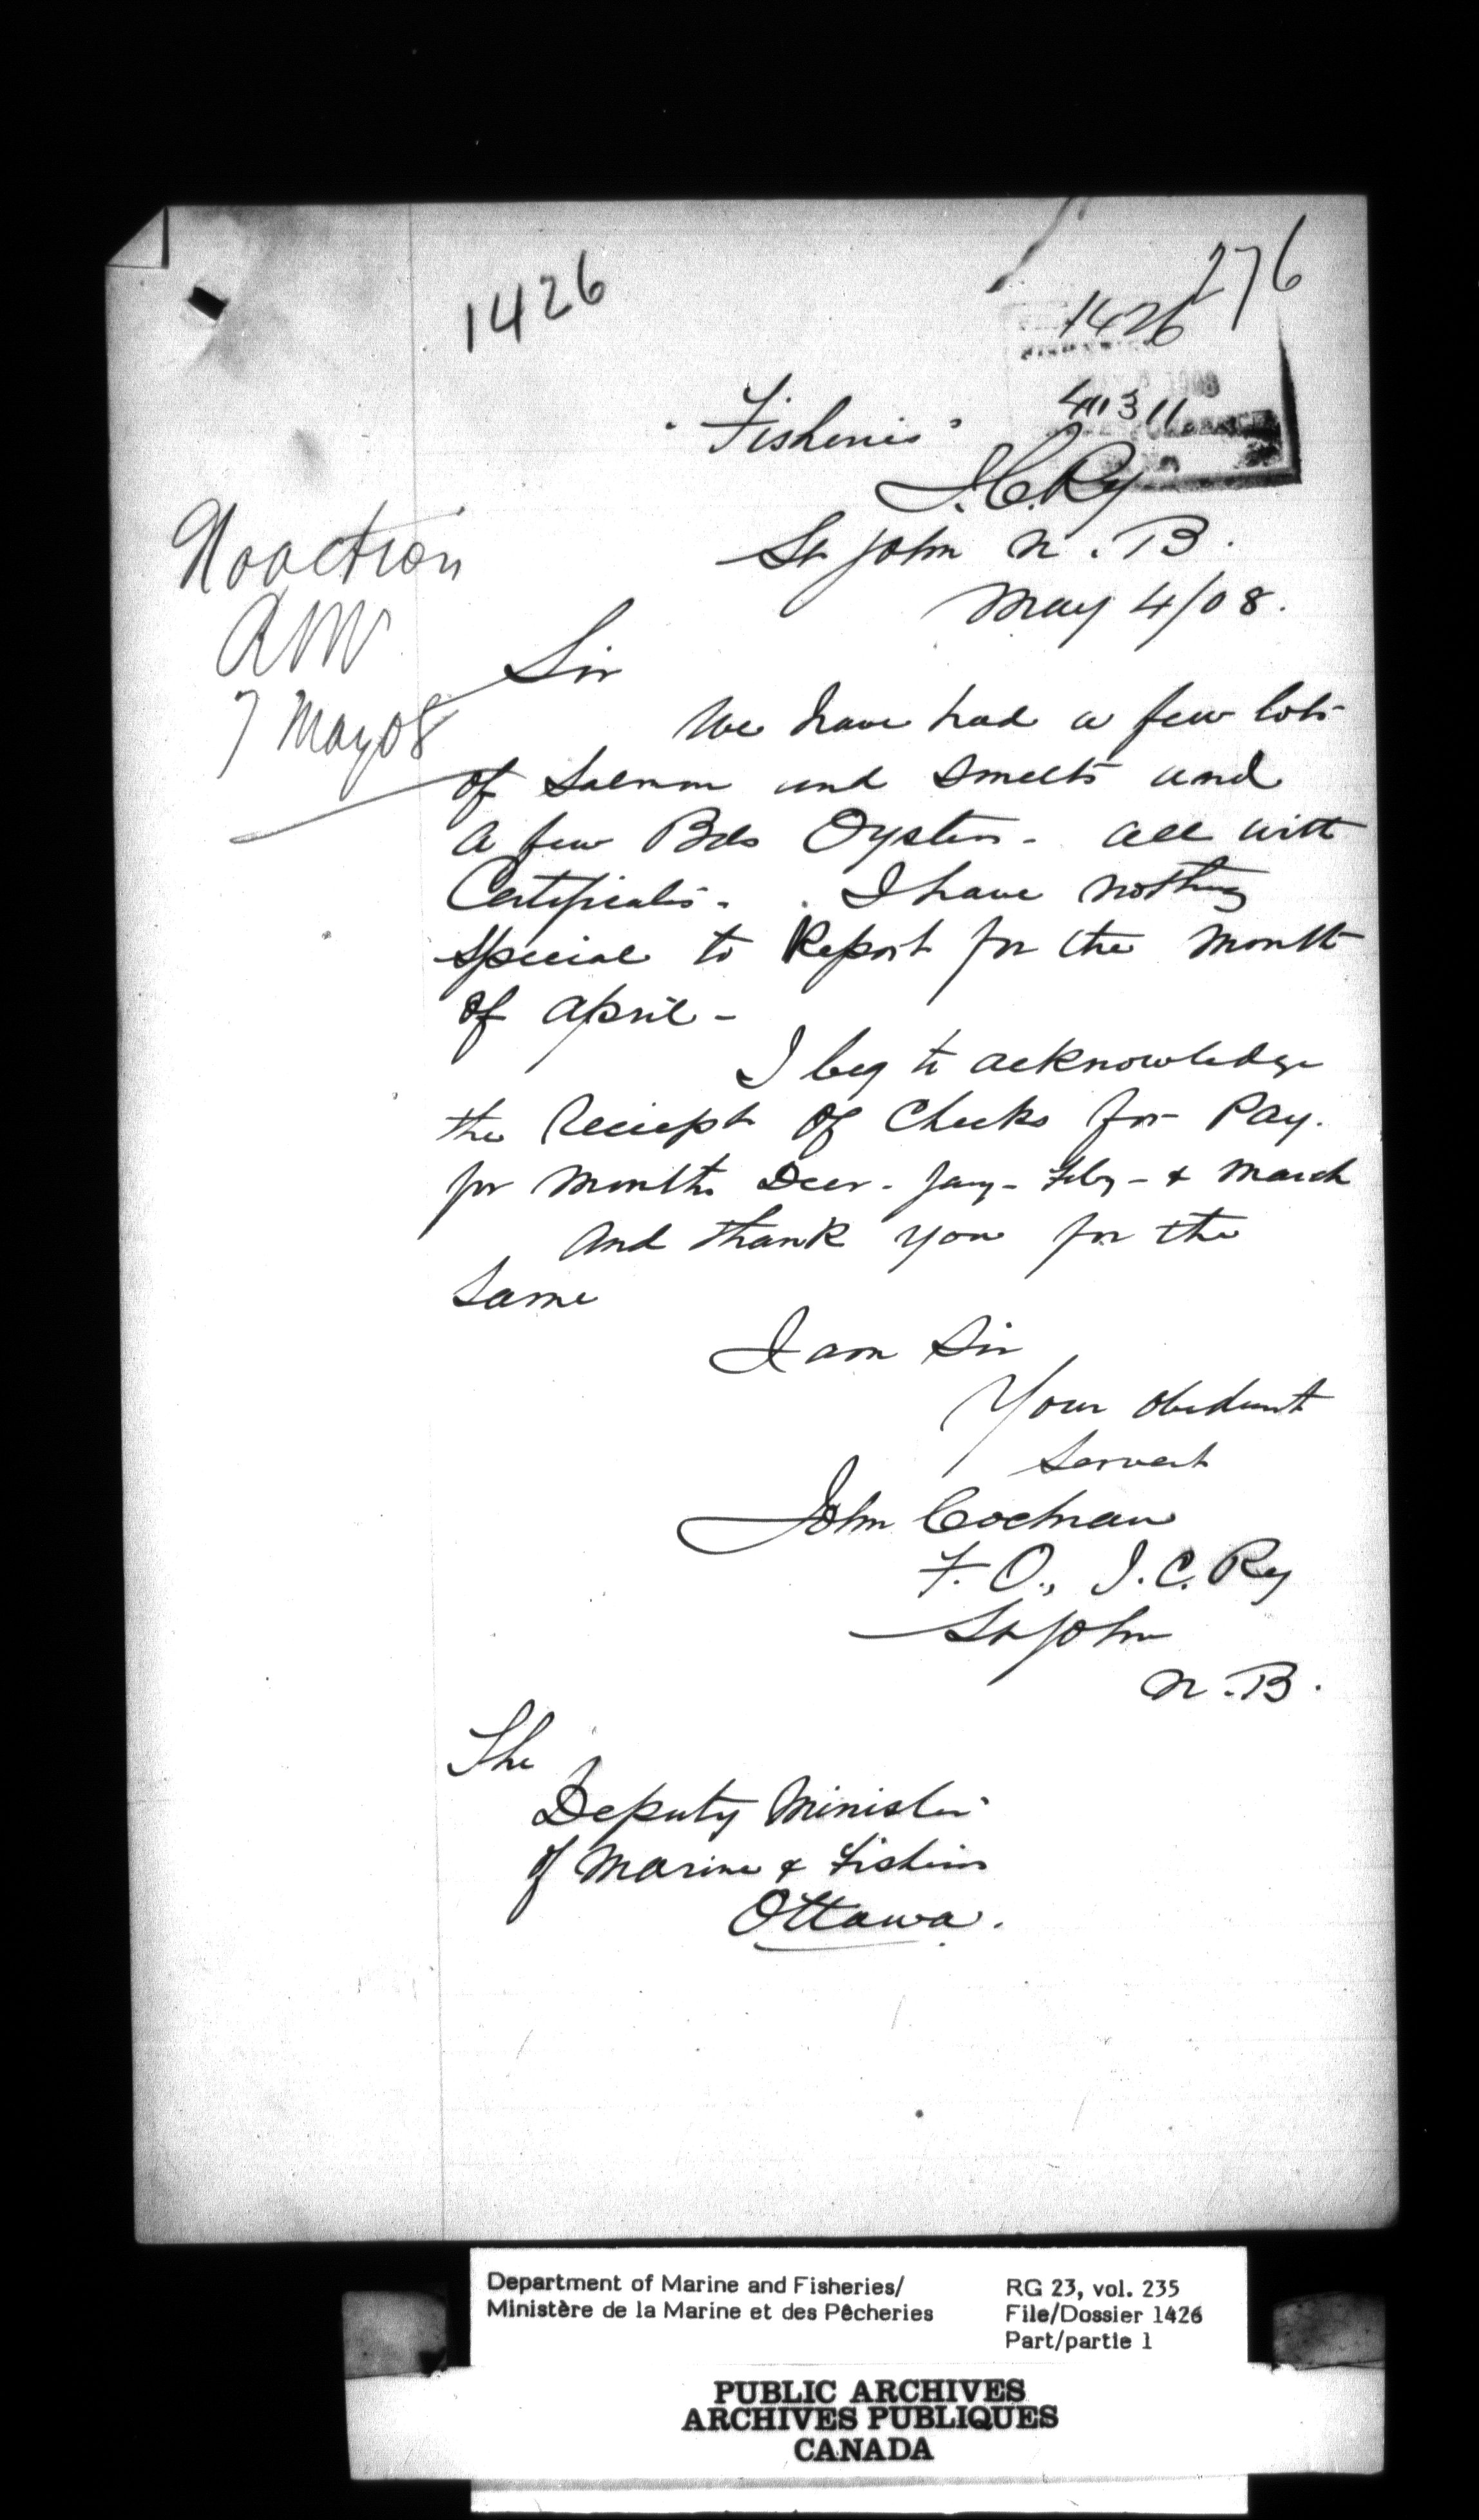 276
1426
1426
1908
"Fisheries"
I.C.Ry
St John N.B.
May 4/08.
No action
7 May 08
Sir
We have had a few lots
of Salmon and Smelts and
a few Bbls Oysters - all with
Certificates - I have nothing
special to Report for the month
of April -
I beg to acknowledge
the reciept of Checks for Pay.
for months Decr - Jany - Feby - & March
And thank you for the
Same
I am Sir
Your obedient
Servant
John Cochran
F.O., I.C.Ry
St John
N.B.
The
Deputy Minister
of Marine & Fisheries
Ottawa.
Department of Marine and Fisheries/
Ministère de la Marine et des Pêcheries
RG 23, vol. 235
File/Dossier 1426
Part/partie 1
PUBLIC ARCHIVES
ARCHIVES PUBLIQUES
CANADA